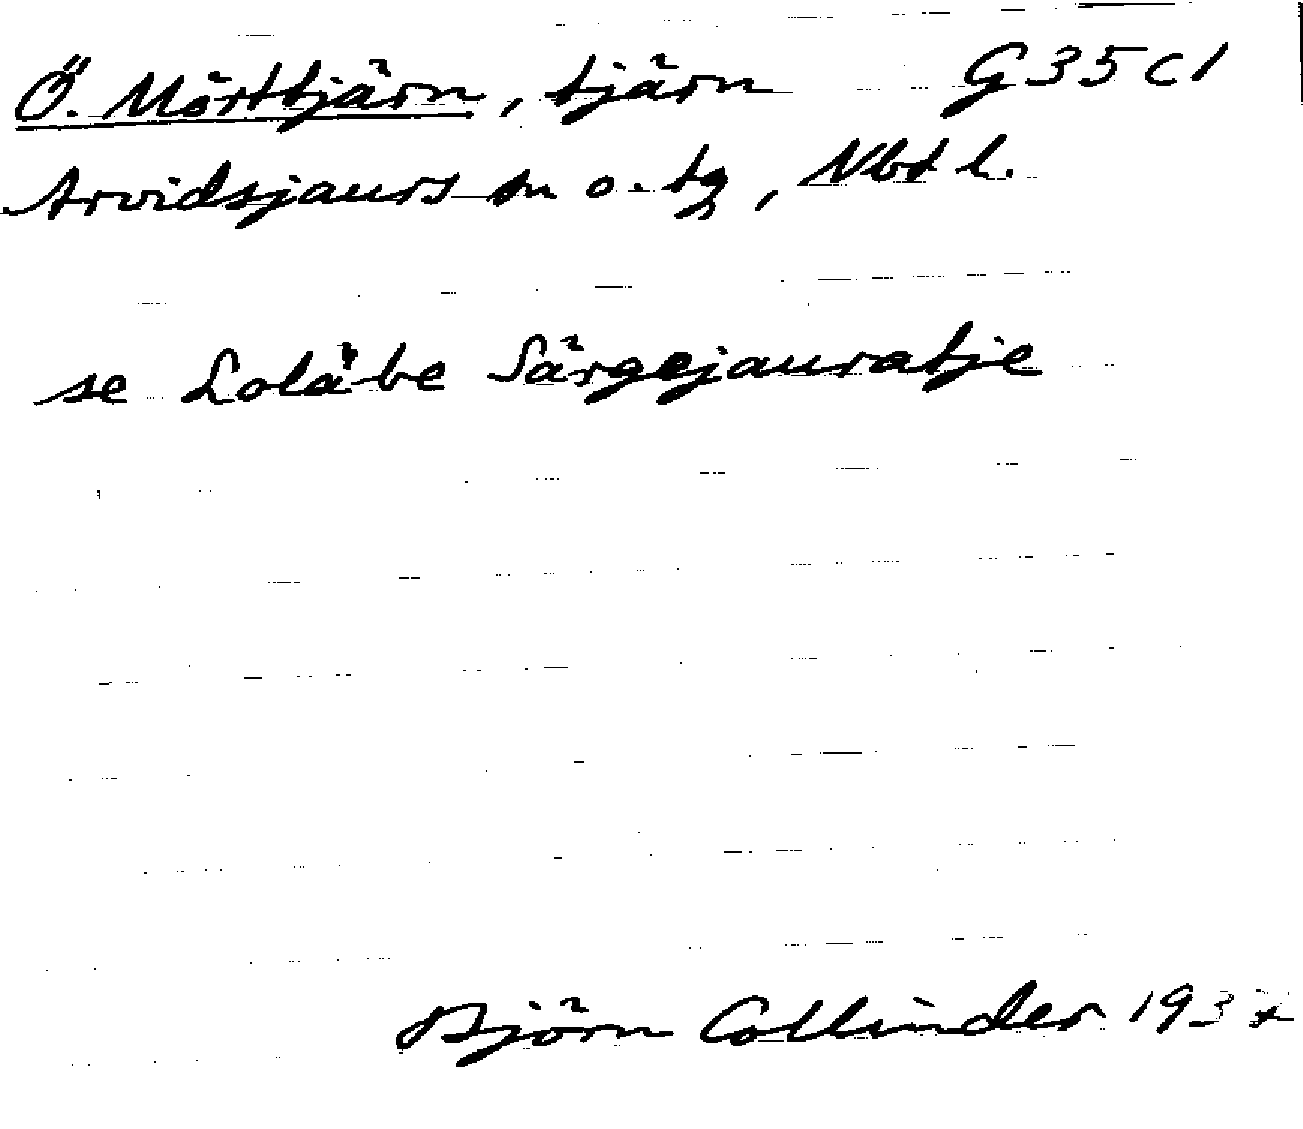 Ö. Mörttjärn, tjärn G 35 c 1
Arvidsjaurs sn o. tg, Nbt l.
se Lolä'be Särgejauratje
Björn Collinder 193